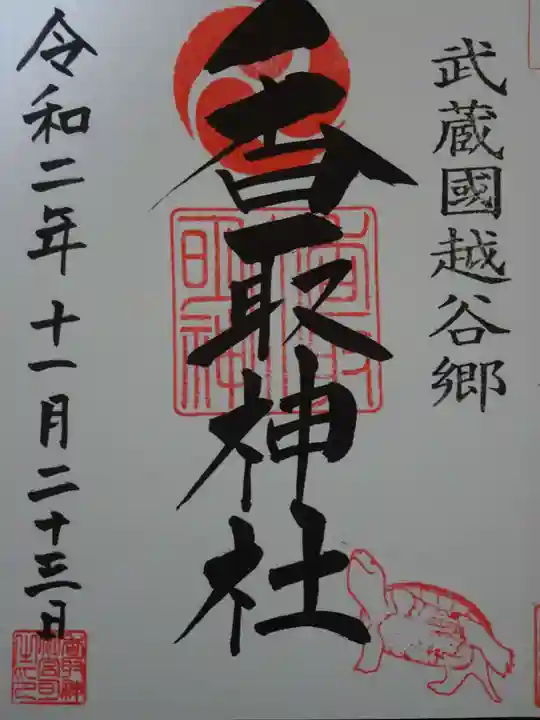 武蔵國越谷郷
香取神社
令和二年十一月二十三日